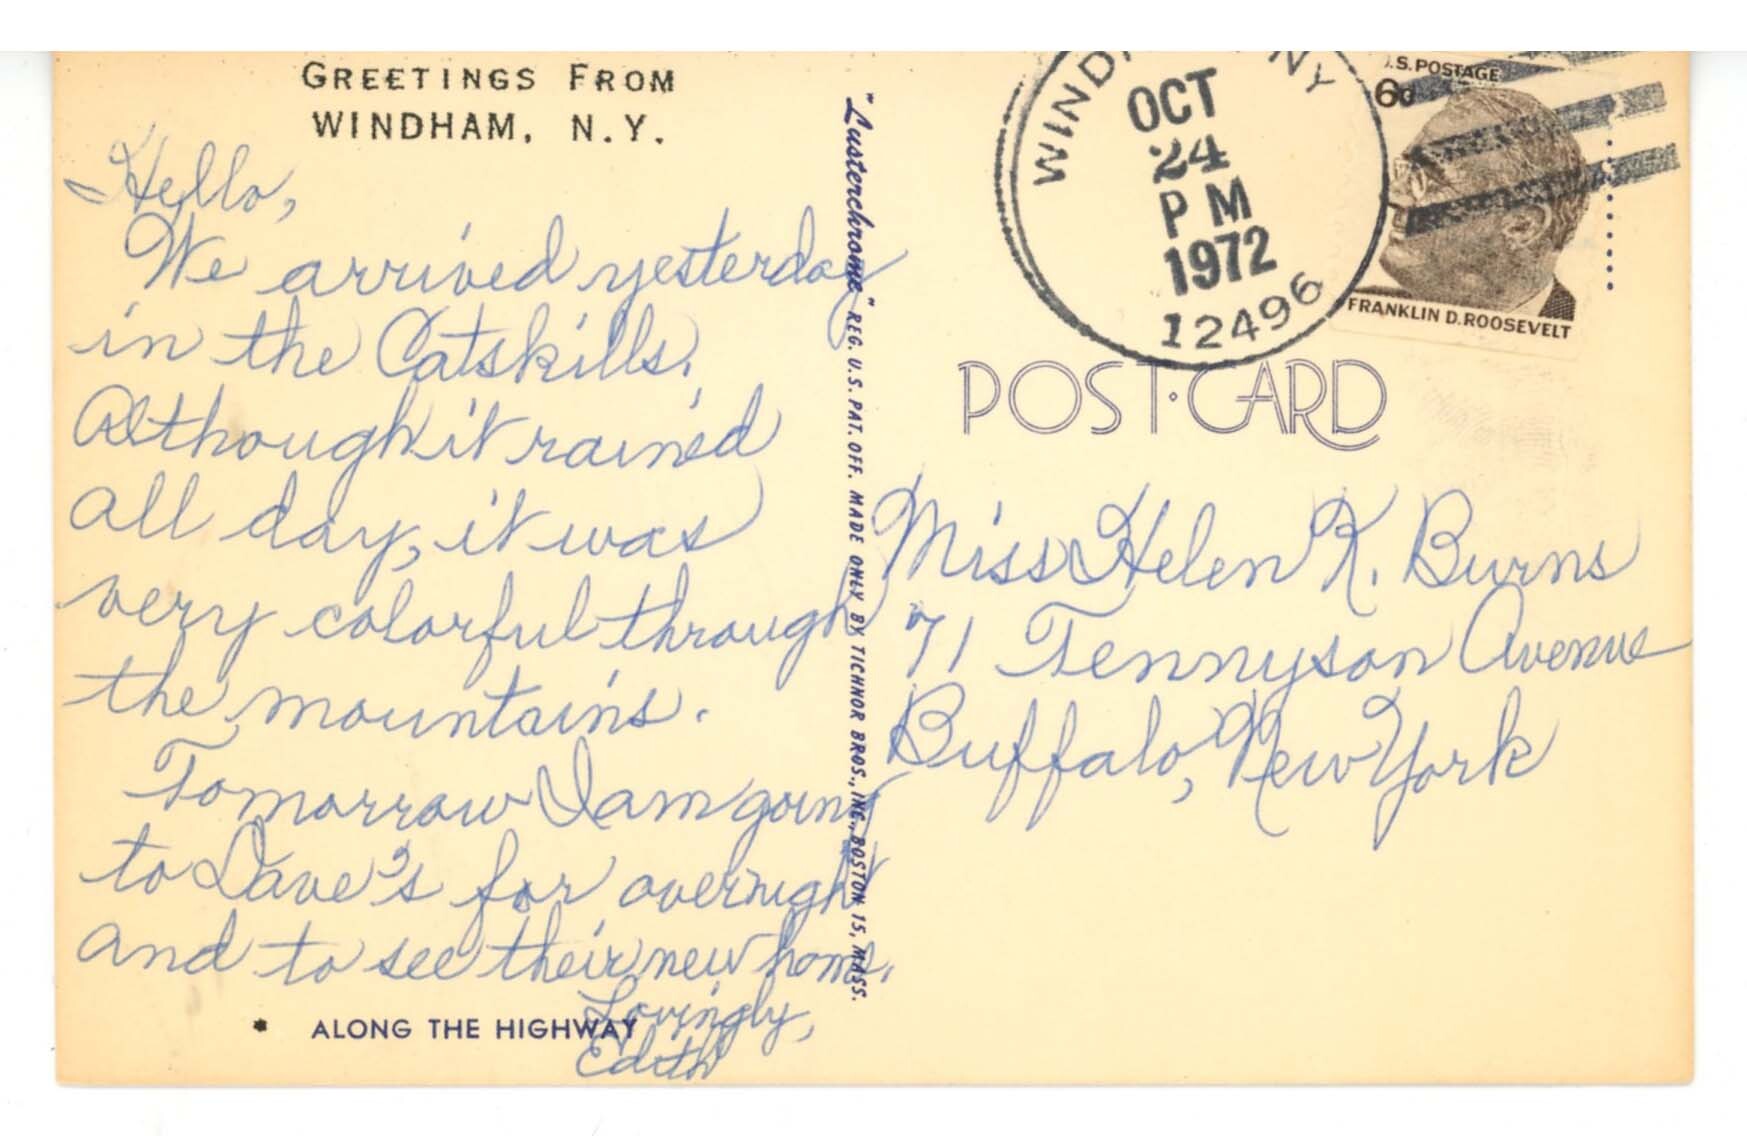 GREETINGS FROM
WINDHAM, N.Y.
Hello,
We arrived yesterday
in the Catskills.
Although it rained
all day, it was
very colorful through
the mountains.
Tomorrow I am going
to Dave's for overnight
and to see their new home.
Lovingly,
Edith
* ALONG THE HIGHWAY
"Lusterchrome" REG. U.S. PAT. OFF. MADE ONLY BY TICHNOR BROS., INC., BOSTON 15, MASS.
NY
OCT
24
PM
1972
12496
U.S. POSTAGE
6¢
FRANKLIN D. ROOSEVELT
POST·CARD
Miss Helen K. Burns
71 Tennyson Avenue
Buffalo, New York